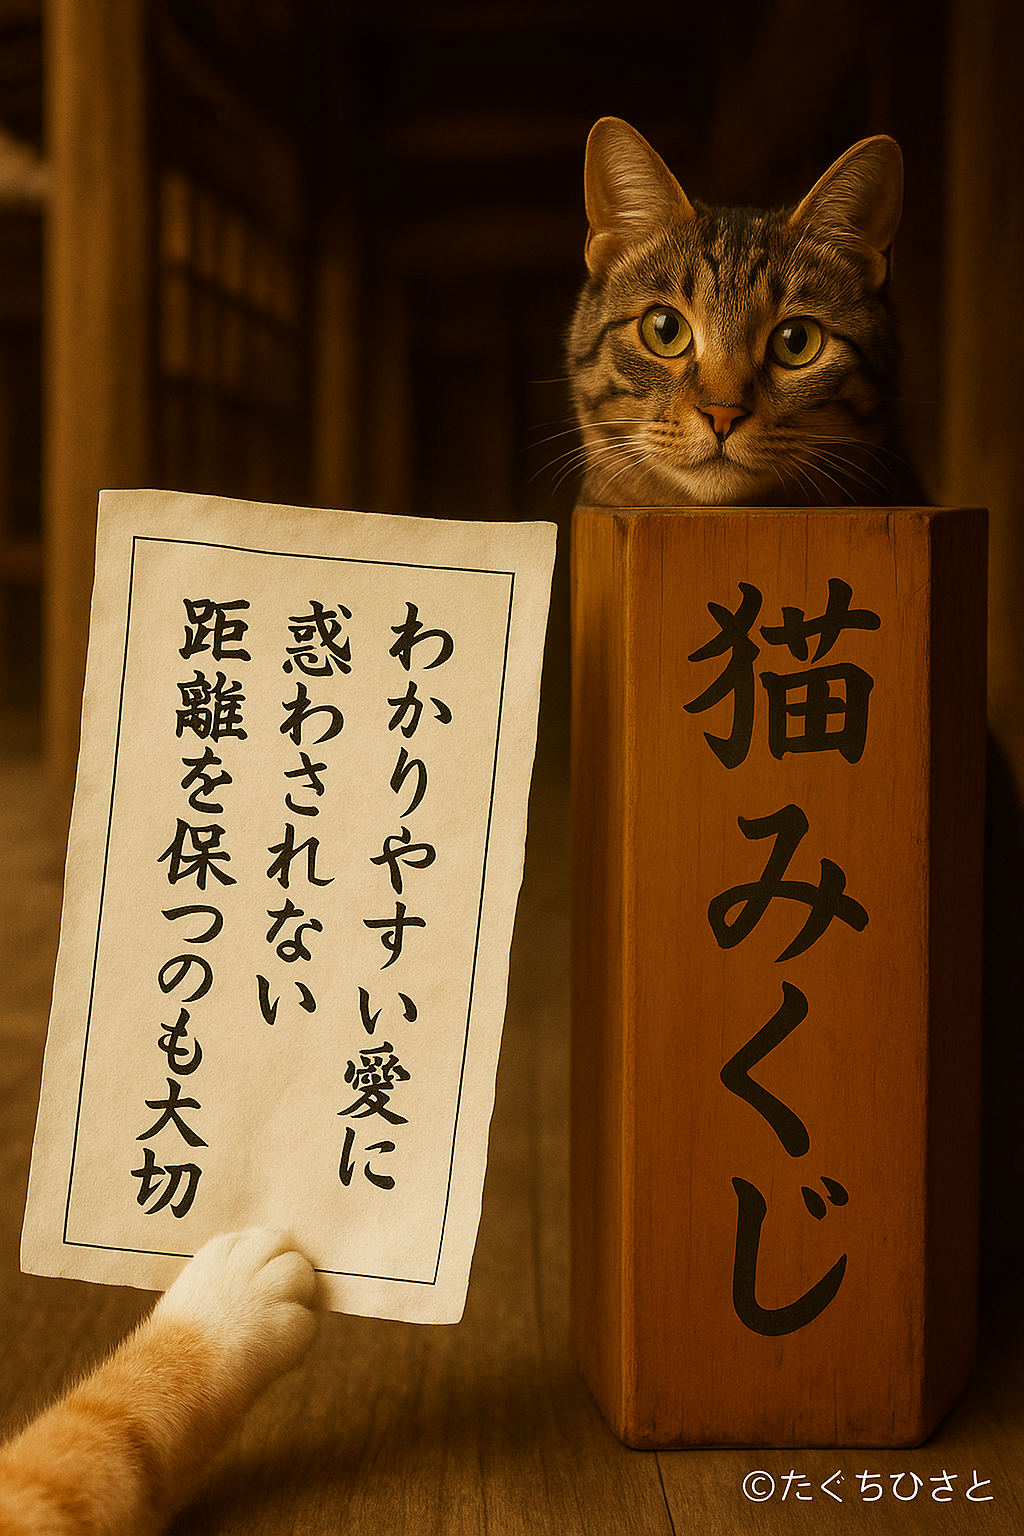 わかりやすい愛に
惑わされない
距離を保つのも大切
猫みくじ
©たぐちひさと